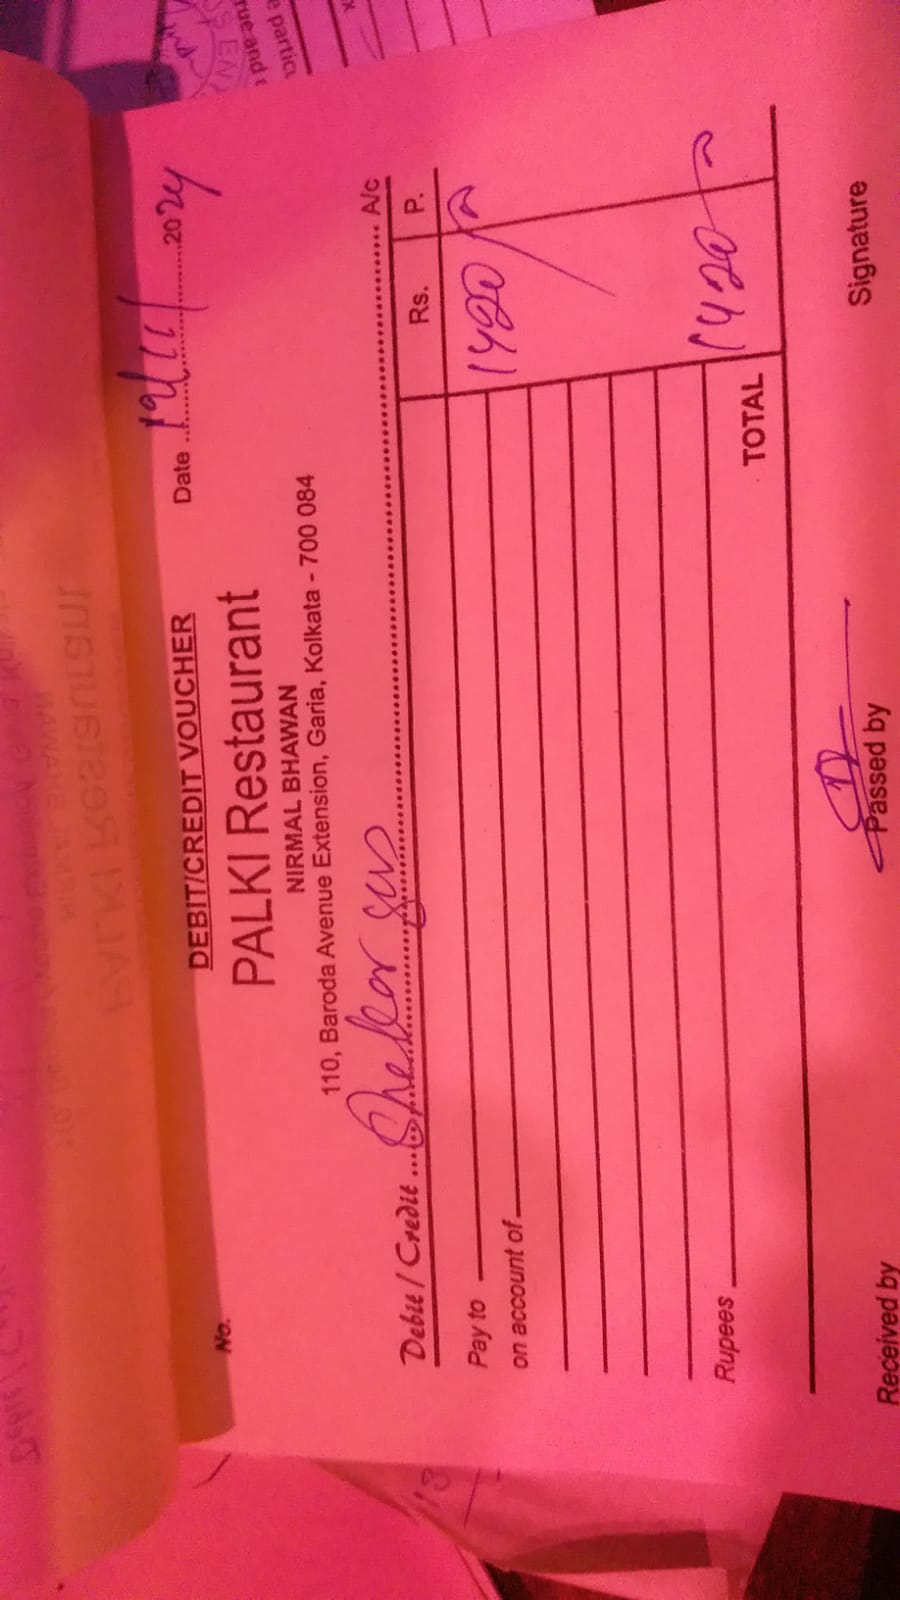 DEBIT/CREDIT VOUCHER
Date 19/11/2024
PALKI Restaurant
NIRMAL BHAWAN
110, Baroda Avenue Extension, Garia, Kolkata - 700 084
No.
Debit / Credit Shekar Sen A/c
Rs. P.
Pay to 1420/-
on account of
Rupees
TOTAL 1420/-
Received by Passed by Signature